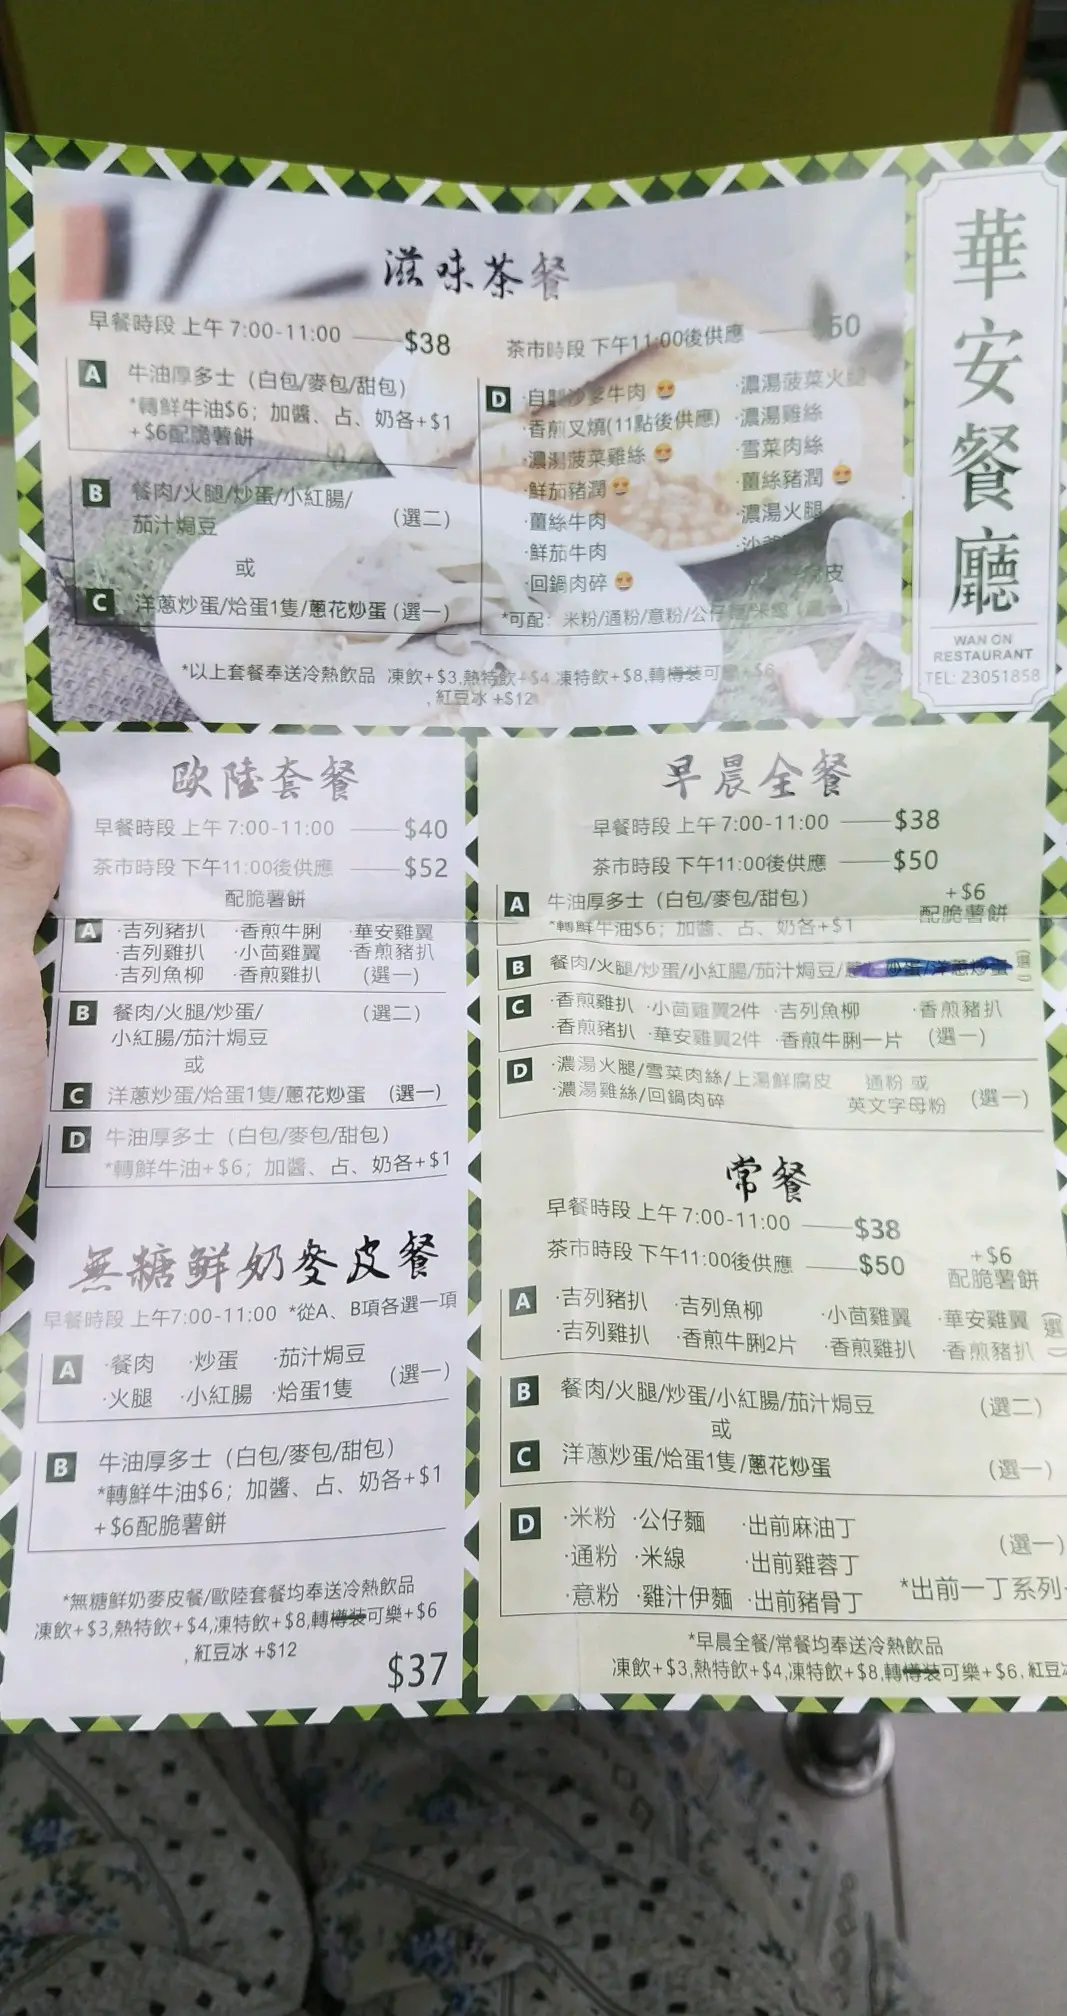 華安餐廳
WAN ON
RESTAURANT
TEL: 23051858
滋味茶餐
早餐時段 上午 7:00-11:00 $38
A 牛油厚多士（白包/麥包/甜包）
*轉鮮牛油$6；加醬、占、奶各+$1
+$6配脆薯餅
B 餐肉/火腿/炒蛋/小紅腸/
茄汁焗豆 (選二)
或
C 洋蔥炒蛋/烚蛋1隻/蔥花炒蛋 (選一)
茶市時段 下午11:00後供應 50
D ·自製沙爹牛肉 😍
·香煎叉燒(11點後供應)
·濃湯菠菜雞絲 😍
·鮮茄豬潤 😍
·薑絲牛肉
·鮮茄牛肉
·回鍋肉碎 😍
·濃湯菠菜火腿
·濃湯雞絲
·雪菜肉絲
·薑絲豬潤 😍
·濃湯火腿
·沙爹
皮
*可配：米粉/通粉/意粉/公仔
*以上套餐奉送冷熱飲品 凍飲+$3,熱特飲+$4,凍特飲+$8,轉樽裝可樂+$6
,紅豆冰 +$12
歐陸套餐
早餐時段 上午 7:00-11:00 $40
茶市時段 下午11:00後供應 $52
配脆薯餅
A ·吉列豬扒 ·香煎牛脷 ·華安雞翼
·吉列雞扒 ·小茴雞翼 ·香煎豬扒
·吉列魚柳 ·香煎雞扒 (選一)
B 餐肉/火腿/炒蛋/ (選二)
小紅腸/茄汁焗豆
或
C 洋蔥炒蛋/烚蛋1隻/蔥花炒蛋 (選一)
D 牛油厚多士（白包/麥包/甜包）
*轉鮮牛油+$6；加醬、占、奶各+$1
無糖鮮奶麥皮餐
早餐時段 上午7:00-11:00 *從A、B項各選一項
A ·餐肉 ·炒蛋 ·茄汁焗豆
·火腿 ·小紅腸 ·烚蛋1隻 (選一)
B 牛油厚多士（白包/麥包/甜包）
*轉鮮牛油$6；加醬、占、奶各+$1
+$6配脆薯餅
*無糖鮮奶麥皮餐/歐陸套餐均奉送冷熱飲品
凍飲+$3,熱特飲+$4,凍特飲+$8,轉樽裝可樂+$6
,紅豆冰 +$12
$37
早晨全餐
早餐時段 上午 7:00-11:00 $38
茶市時段 下午11:00後供應 $50
A 牛油厚多士（白包/麥包/甜包） +$6
*轉鮮牛油$6；加醬、占、奶各+$1 配脆薯餅
B 餐肉/火腿/炒蛋/小紅腸/茄汁焗豆/蔥花炒蛋/洋蔥炒蛋
C ·香煎雞扒 ·小茴雞翼2件 ·吉列魚柳 ·香煎豬扒
·香煎豬扒 ·華安雞翼2件 ·香煎牛脷一片 (選一)
D ·濃湯火腿/雪菜肉絲/上湯鮮腐皮 通粉 或
·濃湯雞絲/回鍋肉碎 英文字母粉 (選一)
常餐
早餐時段 上午 7:00-11:00 $38
茶市時段 下午11:00後供應 $50
+$6
配脆薯餅
A ·吉列豬扒 ·吉列魚柳 ·小茴雞翼 ·華安雞翼
·吉列雞扒 ·香煎牛脷2片 ·香煎雞扒 ·香煎豬扒
B 餐肉/火腿/炒蛋/小紅腸/茄汁焗豆 (選二)
或
C 洋蔥炒蛋/烚蛋1隻/蔥花炒蛋 (選一)
D ·米粉 ·公仔麵 ·出前麻油丁 (選一)
·通粉 ·米線 ·出前雞蓉丁
·意粉 ·雞汁伊麵 ·出前豬骨丁 *出前一丁系列
*早晨全餐/常餐均奉送冷熱飲品
凍飲+$3,熱特飲+$4,凍特飲+$8,轉樽裝可樂+$6,紅豆